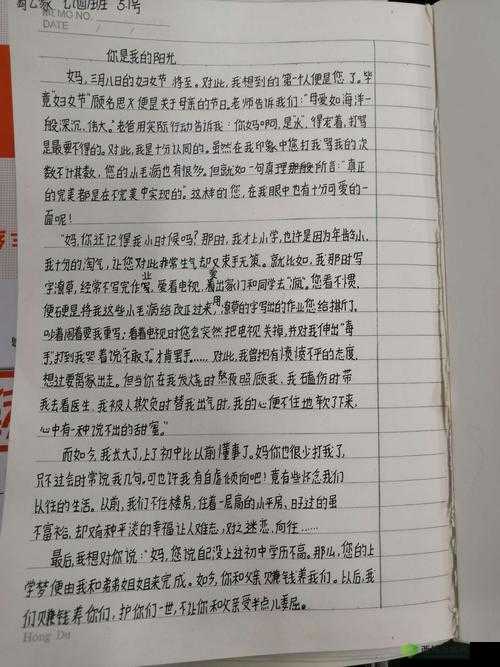 MG NO.
DATE
你是我的阳光
妈,三月八日的妇女节将至。对此,我想到的第一个人便是您了。毕
竟"妇女节"顾名思义便是关于母亲的节日。老师告诉我们:"母爱如海洋一
般深沉,伟大。"老爸用实际行动告诉我:你妈啊,是
是最要不得的。对此,我是十分认同的。虽然在我印象中您打我骂我的次
数不计其数,您的小毛病也有很多。但就如一句真理那般所言:"真正
的完美都是在不完美中实现的。"这样的您,在我眼中也有十分可爱的一
面呢!
"妈,你还记得我小时候吗?那时,我才上小学,也许是因为年龄小,
我十分的淘气,让您对此非常生气却又束手无策。就比如,我那时写
字潦草,经常不写完作业,爱看电视,出家门和同学去"疯"。您看不惯,
便硬是将我这些小毛病给改正过来,潦草的字写出的作业您给撕了,
吵着闹着要我重写;看看电视时您会突然把电视关掉,并对我伸出"毒
手"打到我哭着说"不敢了"才肯罢手……对此,我曾抱有愤愤不平的态度,
想过要离家出走。但当你在我发烧时熬夜照顾我,我磕伤时带
我去看医生,我被人欺负时替我出气时,我的心便不住地软了下来,
心中有一种说不出的甜蜜。"
而如今,我长大了,上了初中比以前懂事了。妈你也很少打我了,
只不过会时常说我几句。可也许我有自虐倾向吧!竟有些怀念我们
以往的生活。以前,我们不住楼房,住着一层高的小平房,日子过的虽
不富裕,却有种平淡的幸福让人难忘,对之迷恋,向往……
最后,我想对你说:"妈,您说自己没上过初中学历不高。那么,您的上
学梦便由我和弟弟姐姐来完成。如今,你和父亲赚钱养我们。以后,我
们赚钱养你们,护你们一世,不让你和父亲受半点儿委屈。
Hong Da